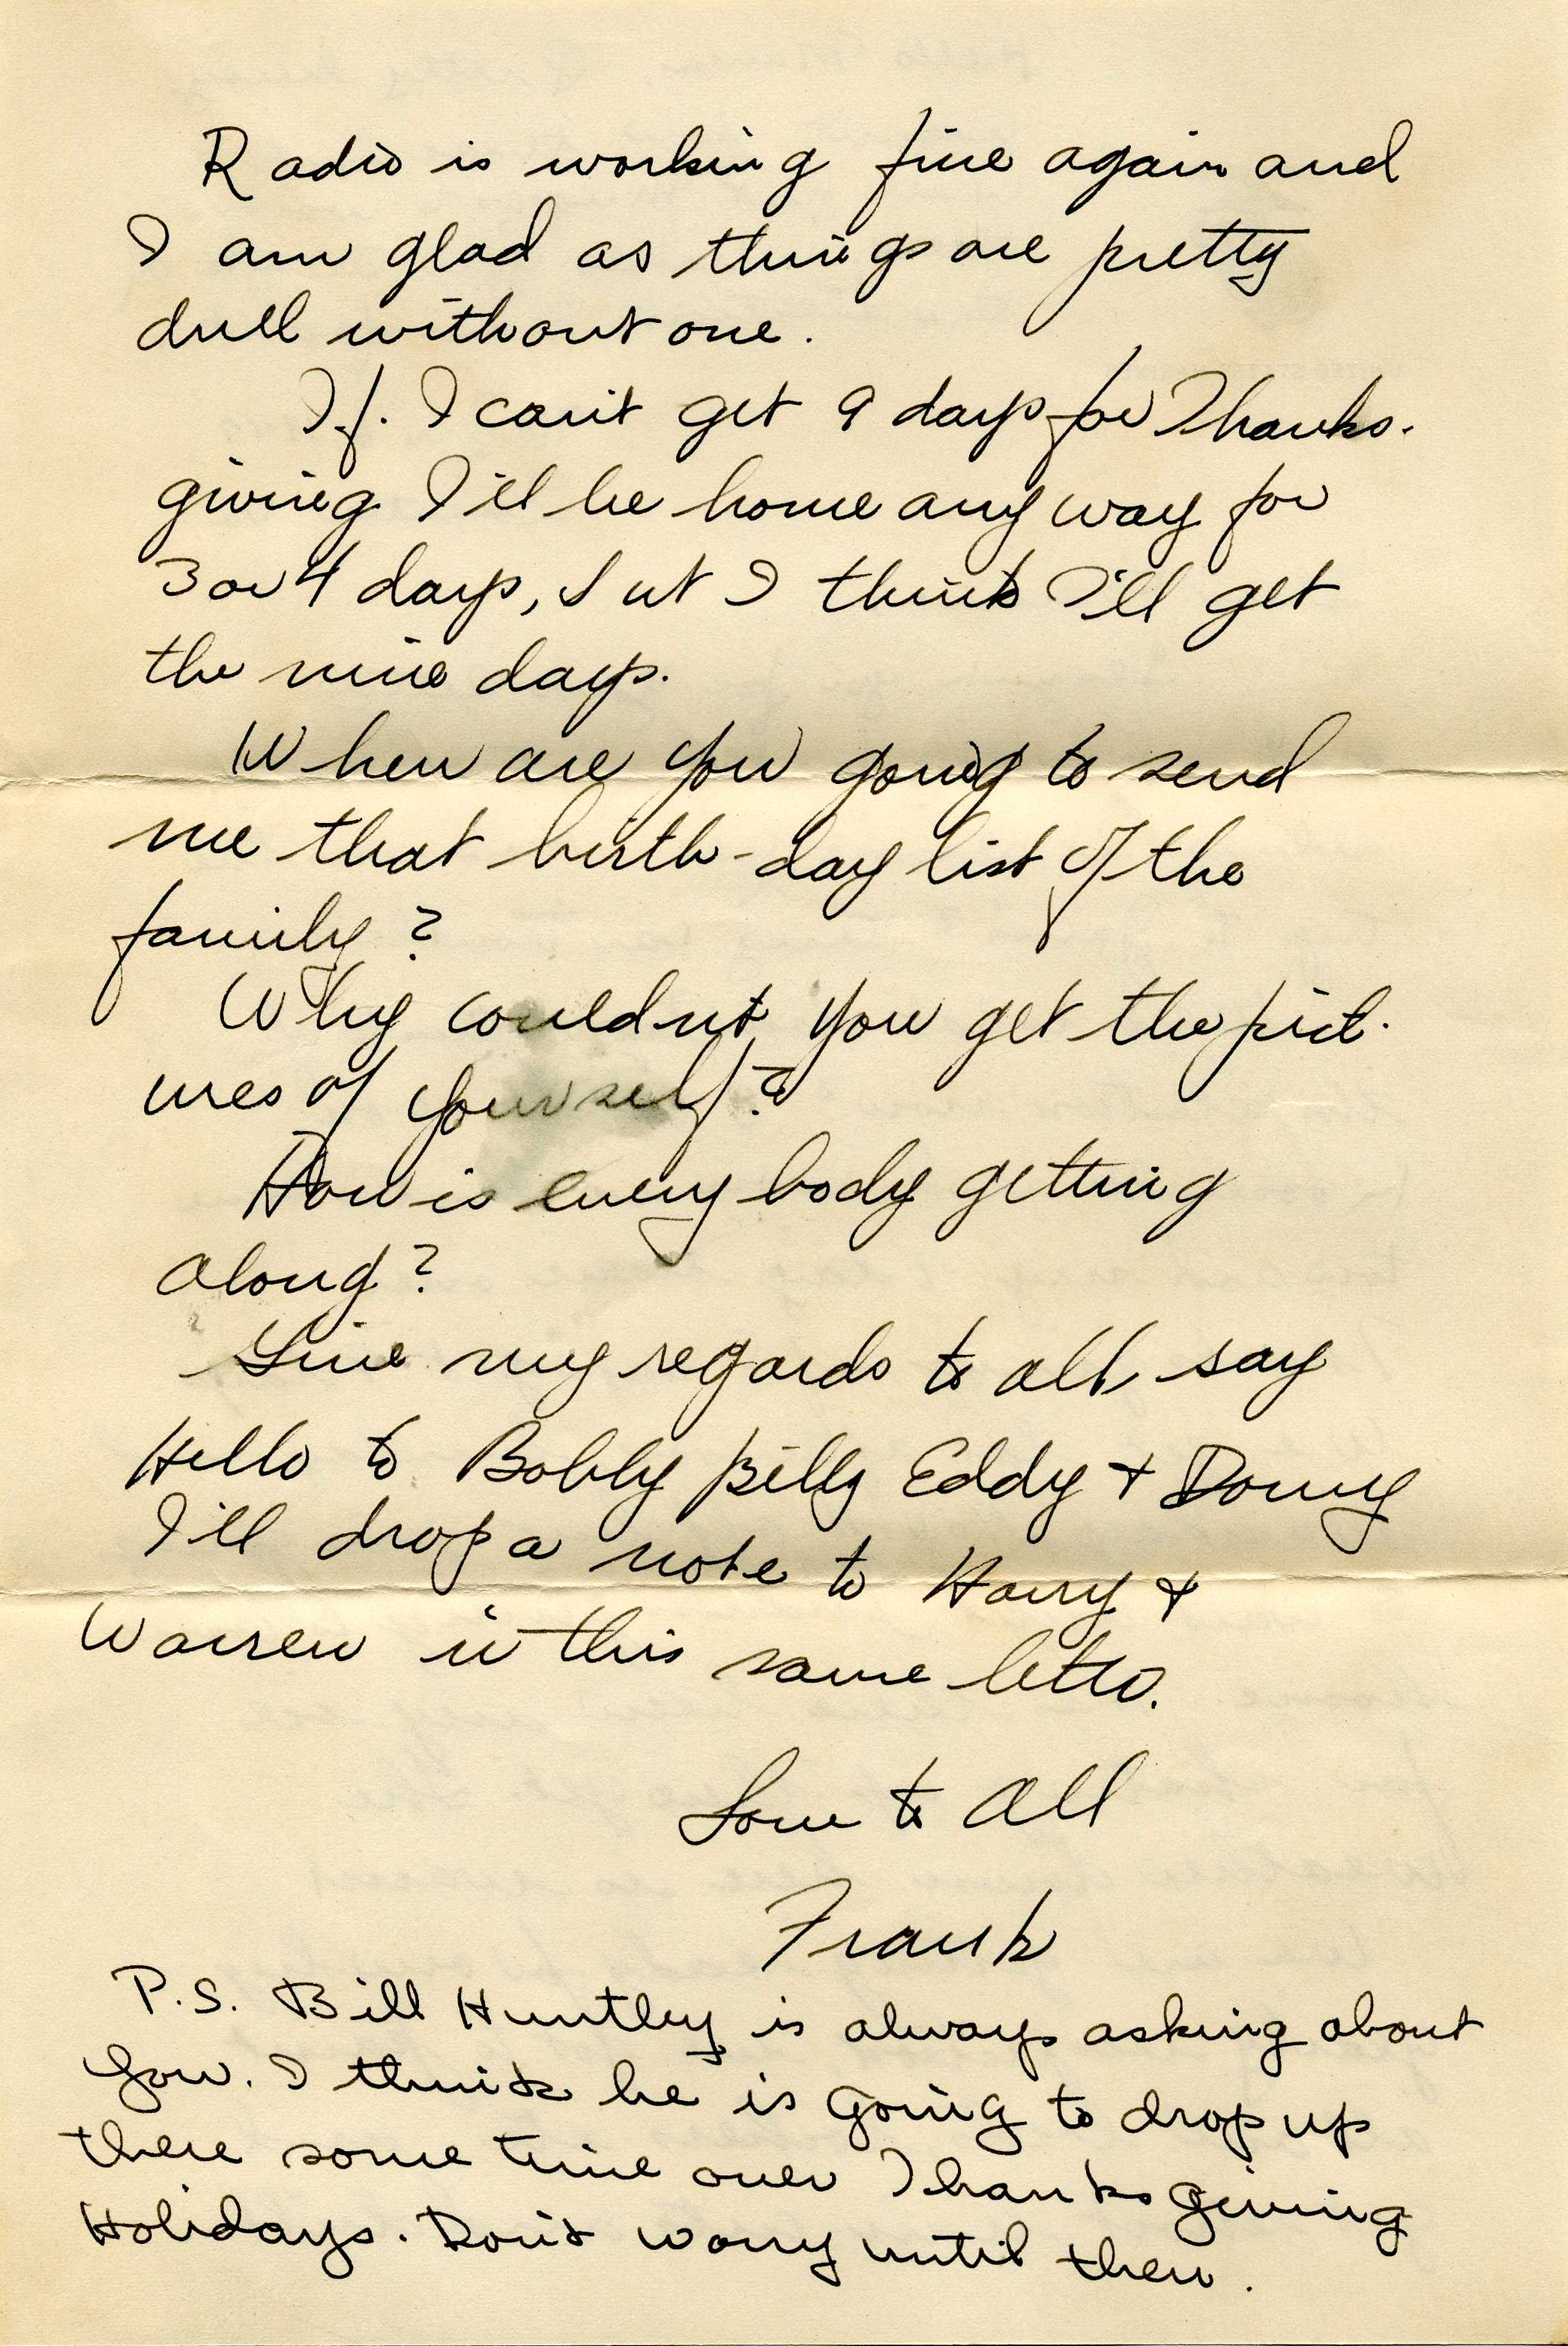 Radio is working fine again and
I am glad as things are pretty
dull without one.
If. I can't get 9 days for Thanks-
giving I'll be home any way for
3 or 4 days, but I think I'll get
the nine days.
When are you going to send
me that birth-day list of the
family?
Why couldnt you get the pict-
ures of yourself?
How is every body getting
along?
Give my regards to all, say
Hello to Bobby Billy Eddy + Donny
I'll drop a note to Harry +
Warren in this same letter.
Love to All
Frank
P.S. Bill Huntley is always asking about
you. I think he is going to drop up
there some time over Thanksgiving
Holidays. Don't worry until then.